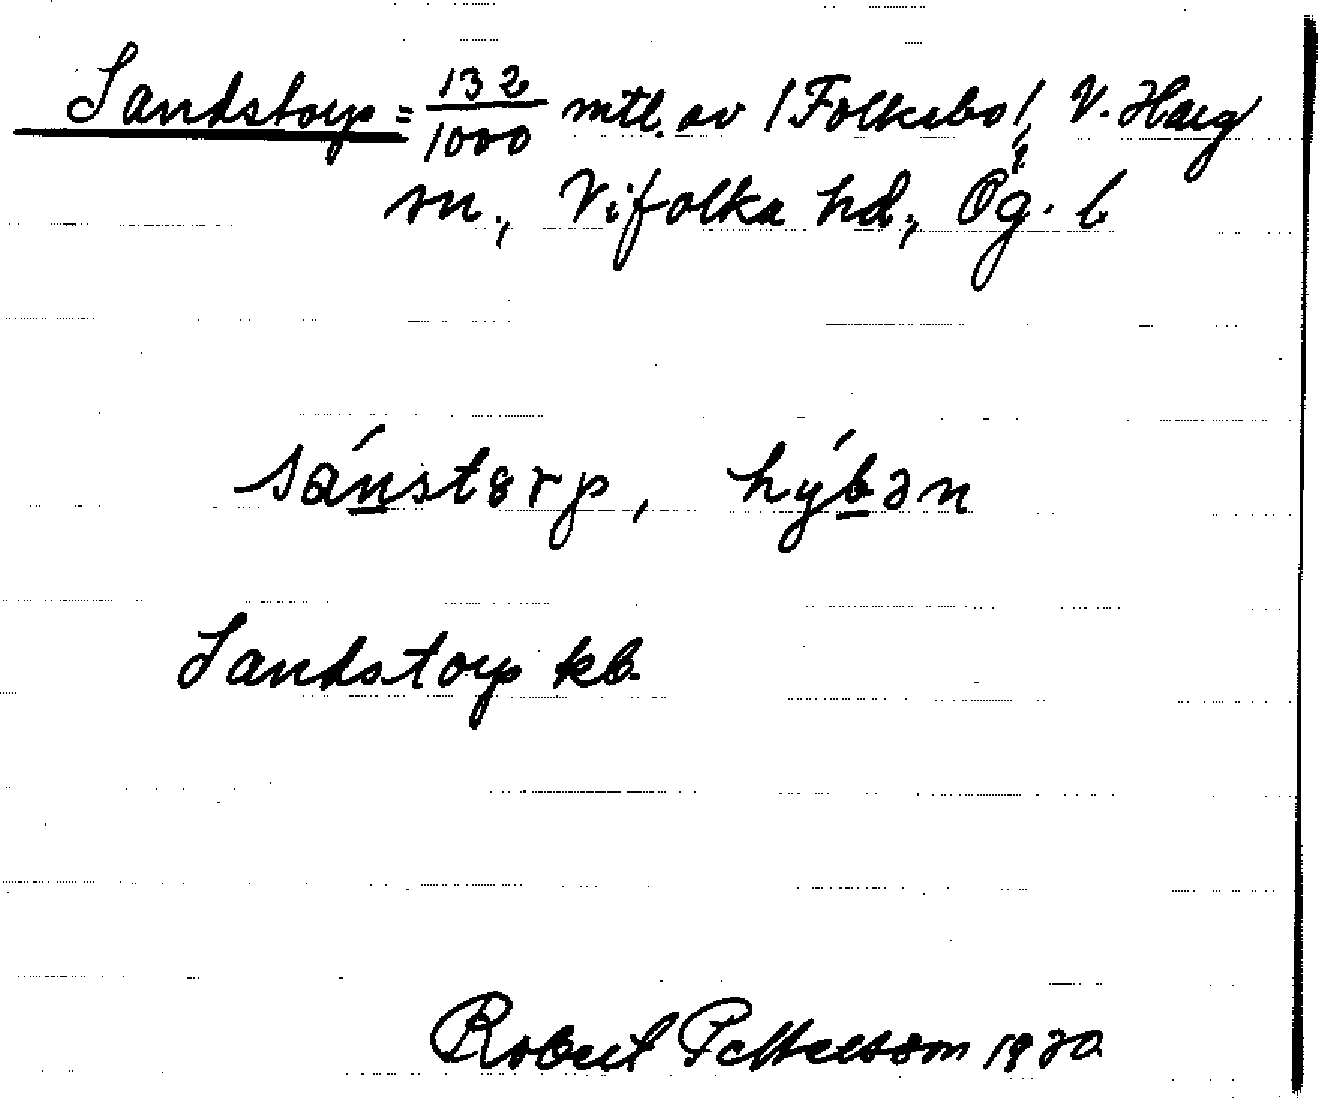 Sandstorp = 132/1000 mtl. av /Folkabo/, V. Harg
sn., Vifolka hd., Ög. l
sán̲stɵrp, hýb̲ən
Sandstorp kb.
Robert Pettersson 1920